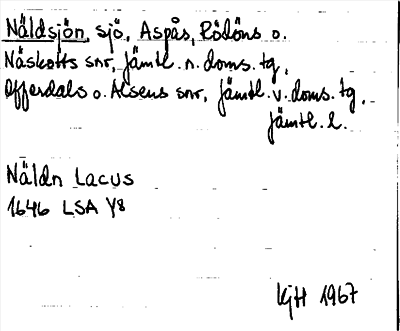 Näldsjön, sjö, Aspås, Rödöns o.
Näskotts snr, Jämtl. n. doms. tg,
Offerdals o. Alsens snr, Jämtl. v. doms. tg.
Jämtl. l.
Näldn Lacus
1646 LSA Y8
KjH 1967